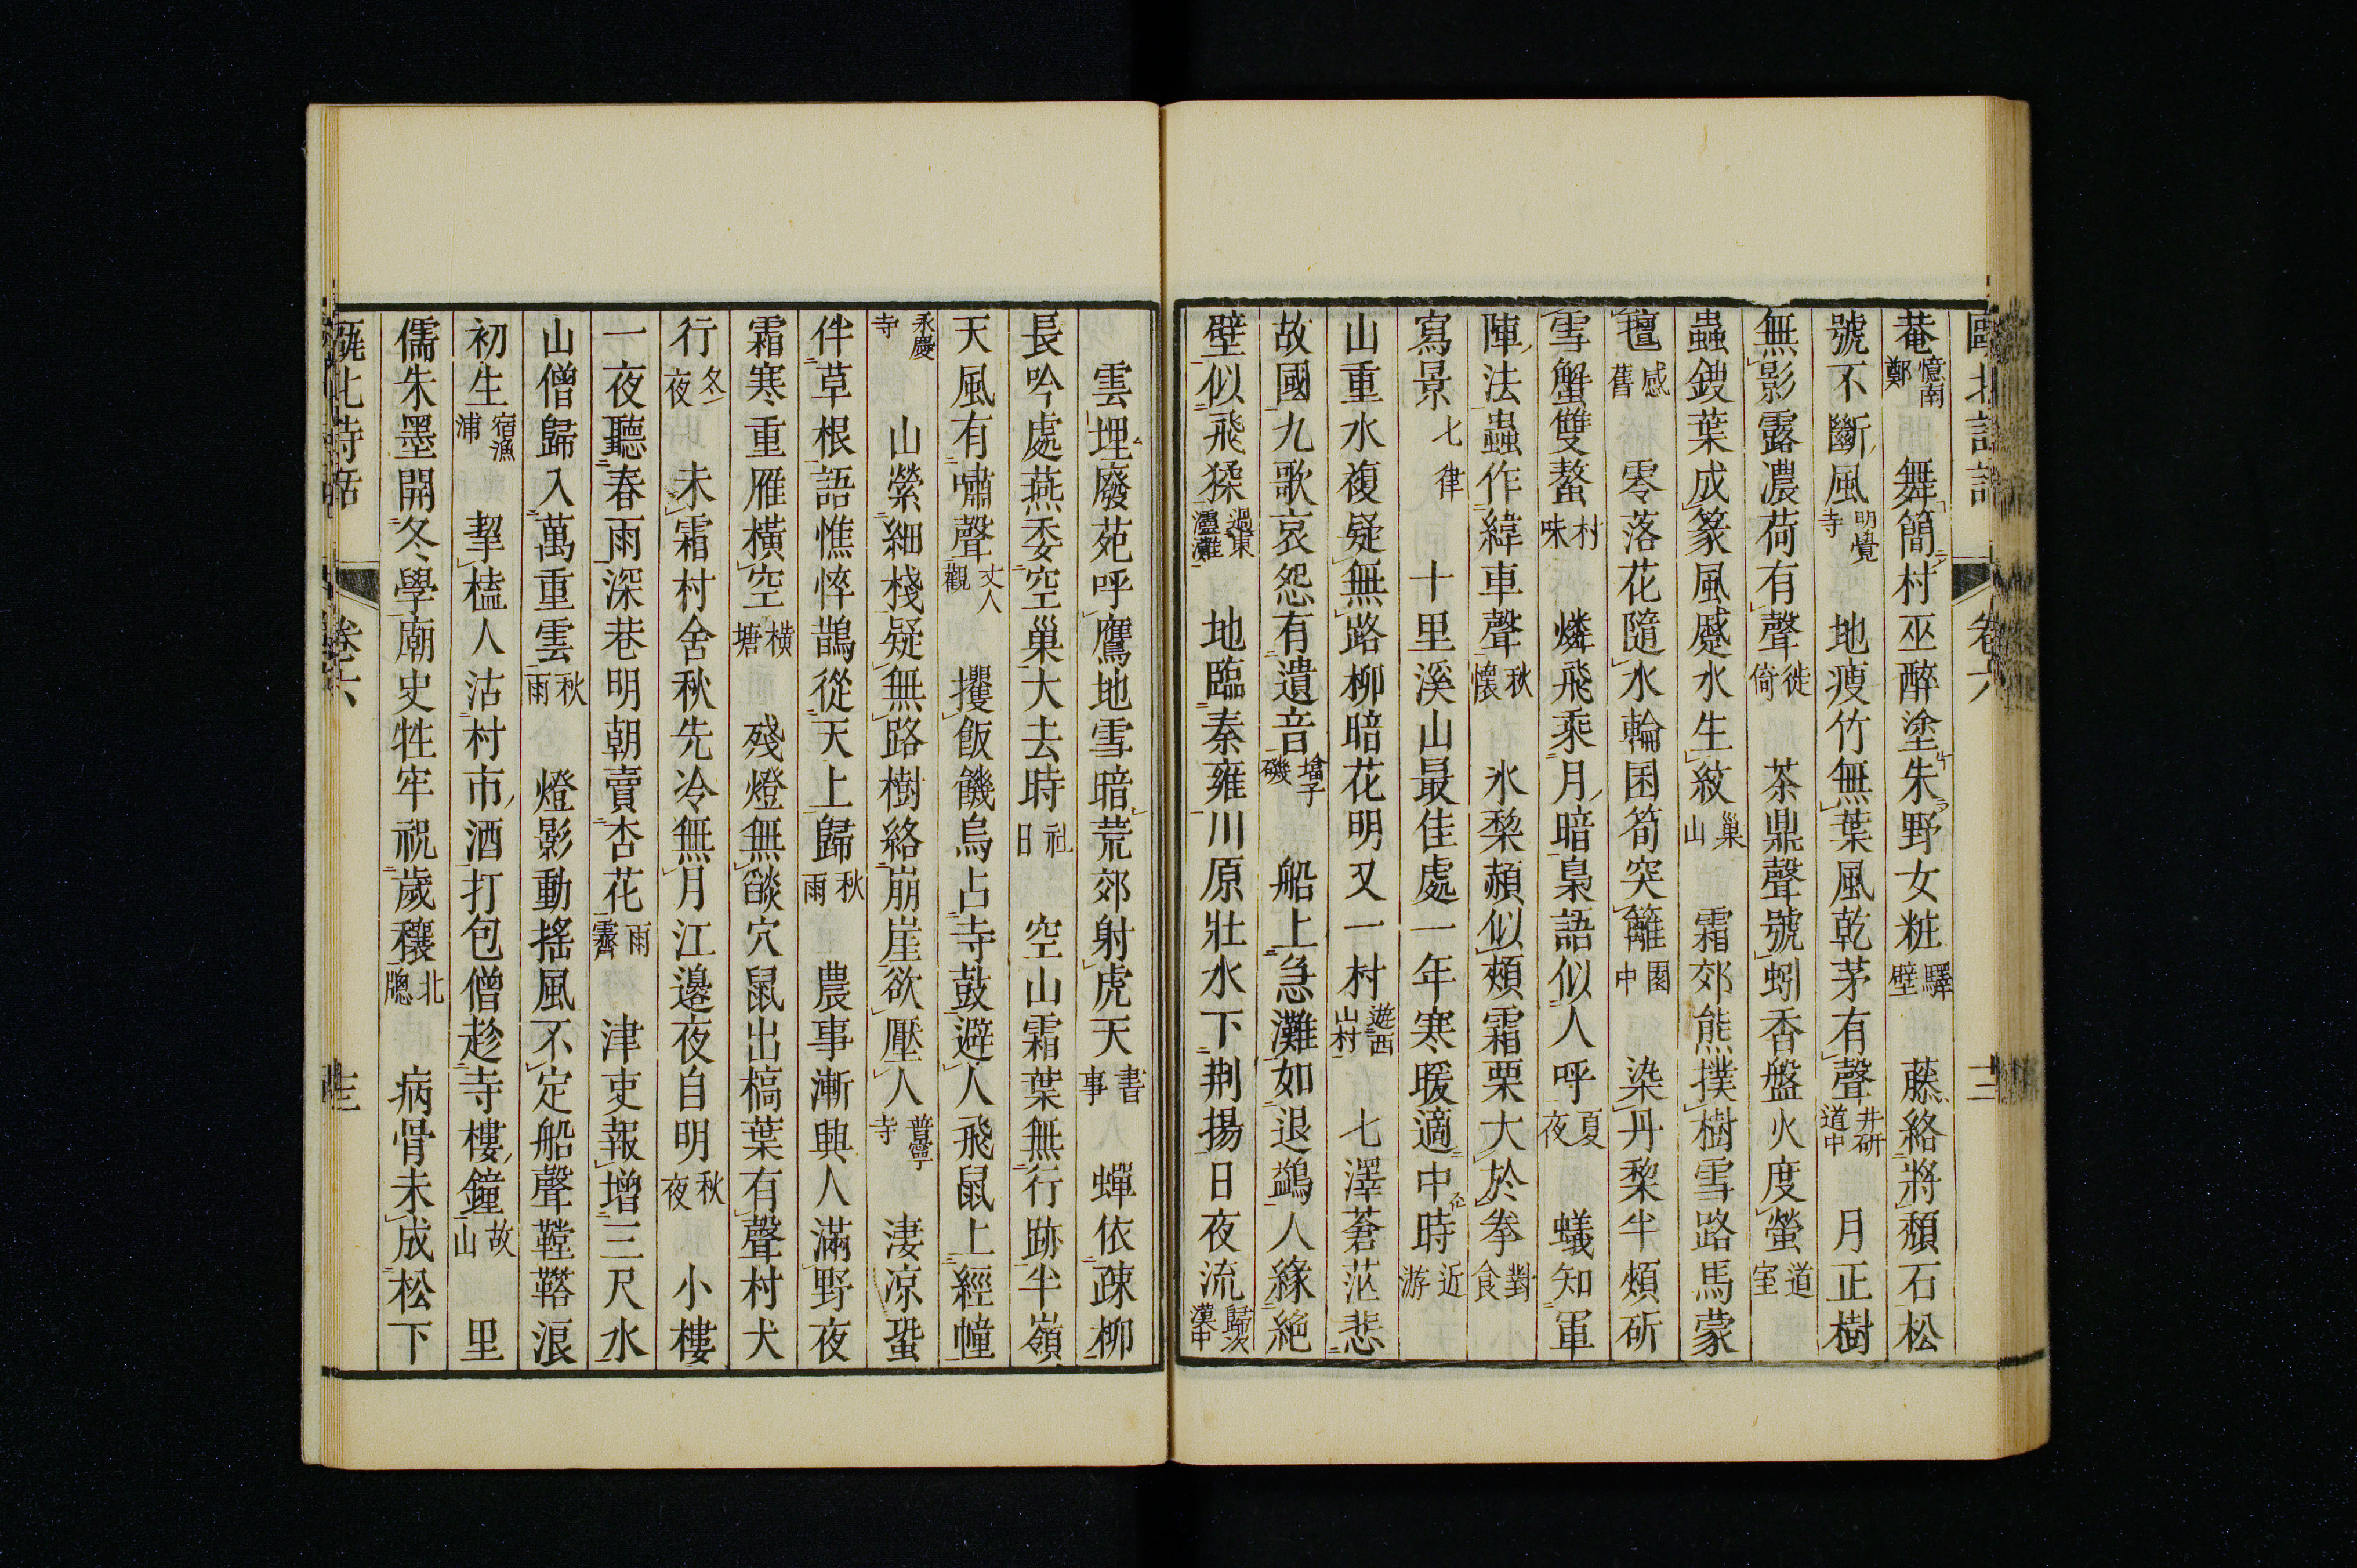 菴憶南鄭　舞簡村巫醉塗朱野女粧驛壁　藤絡將頽石松
號不斷風明覺寺　地瘦竹無葉風乾茅有聲井研道中　月正樹
無影露濃荷有聲徙倚　茶鼎聲號蚓香盤火度螢道室
蟲鍥葉成篆風蹙水生紋巢山　霜郊熊撲樹雪路馬蒙
氊感舊　零落花隨水輪囷筍突籬園中　染丹梨半頰斫
雪蟹雙螯村味　燐飛乘月暗梟語似人呼夏夜　蟻知軍
陣法蟲作緯車聲秋懷　氷棃頳似頰霜栗大於拳對食
寫景七律　十里溪山最佳處一年寒暖適中時近游
山重水複疑無路柳暗花明又一村遊西山村　七澤蒼茫悲
故國九歌哀怨有遺音塔子磯　船上急灘如退鷁人緣絶
壁似飛猱過東灵灘　地臨秦雍川原壯水下荆揚日夜流歸次漢中
雲埋廢苑呼鷹地雪暗荒郊射虎天書事　蟬依疎柳
長吟處燕委空巢大去時社日　空山霜葉無行跡半嶺
天風有嘯聲丈人觀　攫飯饑烏占寺鼓避人飛鼠上經幢
永慶寺　山縈細棧疑無路樹絡崩崖欲壓人普寧寺　淒凉蛩
伴草根語憔悴鵲從天上歸秋雨　農事漸興人滿野夜
霜寒重雁橫空橫塘　殘燈無燄穴鼠出槁葉有聲村犬
行冬夜　未霜村舍秋先冷無月江邊夜自明秋夜　小樓
一夜聽春雨深巷明朝賣杏花雨霽　津吏報增三尺水
山僧歸入萬重雲秋雨　燈影動搖風不定船聲鞺鞳浪
初生宿漁浦　挈榼人沽村市酒打包僧趁寺樓鐘故山　里
儒朱墨開冬學廟史牲牢祝歲穰北牕　病骨未成松下
甌北詩話　卷六